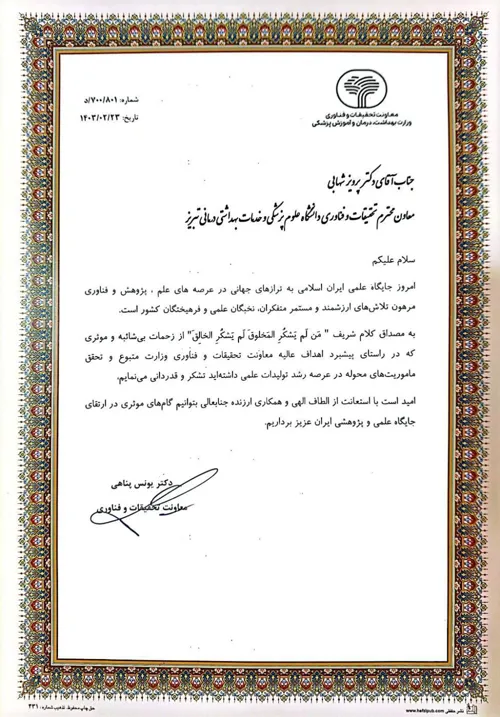 معاونت تحقیقات و فناوری
وزارت بهداشت، درمان و آموزش پزشکی
شماره: ۷۰۰/۸۰۱/د
تاریخ: ۱۴۰۳/۰۲/۲۳
جناب آقای دکتر پرویز شهابی
معاون محترم تحقیقات و فناوری دانشگاه علوم پزشکی و خدمات بهداشتی درمانی تبریز
سلام علیکم
امروز جایگاه علمی ایران اسلامی به ترازهای جهانی در عرصه های علم ، پژوهش و فناوری
مرهون تلاش‌های ارزشمند و مستمر متفکران، نخبگان علمی و فرهیختگان کشور است.
به مصداق کلام شریف " مَن لَم یَشکُرِ المَخلوقَ لَم یَشکُرِ الخالِقَ" از زحمات بی‌شائبه و موثری
که در راستای پیشبرد اهداف عالیه معاونت تحقیقات و فناوری وزارت متبوع و تحقق
ماموریت‌های محوله در عرصه رشد تولیدات علمی داشته‌اید تشکر و قدردانی می‌نمایم.
امید است با استعانت از الطاف الهی و همکاری ارزنده جنابعالی بتوانیم گام‌های موثری در ارتقای
جایگاه علمی و پژوهشی ایران عزیز برداریم.
دکتر یونس پناهی
معاونت تحقیقات و فناوری
نشر حافظی www.hafizipub.com
حق چاپ محفوظ، تذهیب شماره: ۴۳۱